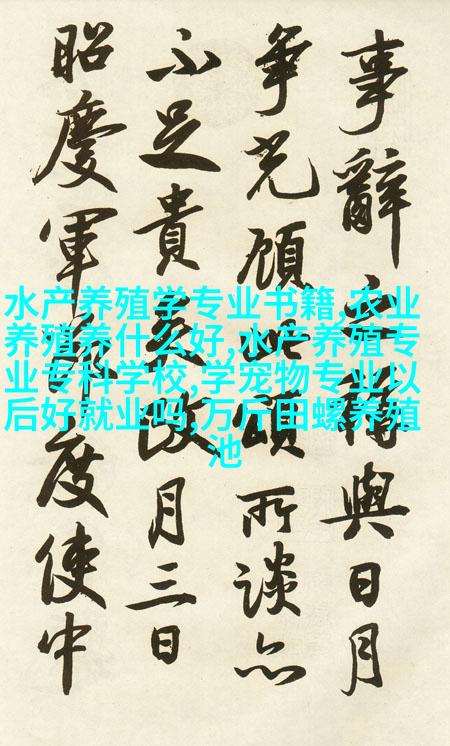 事辭與日月
争光顧此頌所談亦
不足貴月三日
昭慶軍節度使中
水产养殖学专业书籍,农业
养殖养什么好,水产养殖专
业专科学校,学宠物专业以
后好就业吗,万斤田螺养殖
池